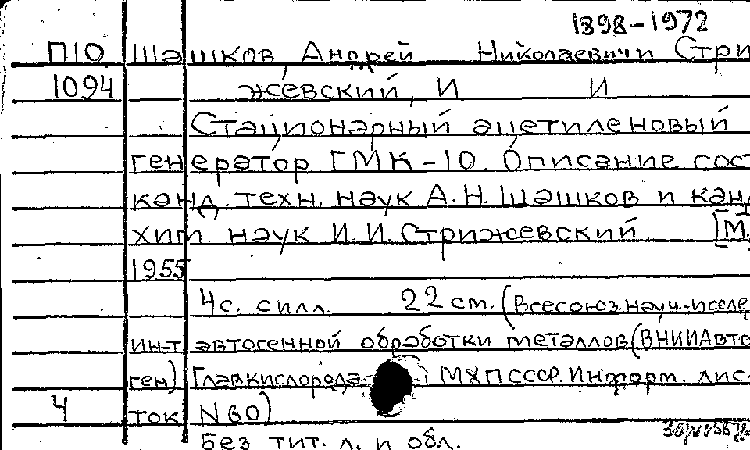 1898-1972
П10 Шашков, Андрей Николаевич и Стри
1094 жевский, И И
Стационарный ацетиленовый
генератор ГМК-10. Описание сост
канд. техн. наук А.Н. Шашков и канд
хим наук И.И. Стрижевский [М.
1955
4с. с илл. 22 см. (Всесоюз. науч.-исслед
ин-т автогенной обработки металлов (ВНИИАвто
ген) Главкислорода МХП СССР. Информ. лис-
4 ток N 60)
Без тит. л. и обл.